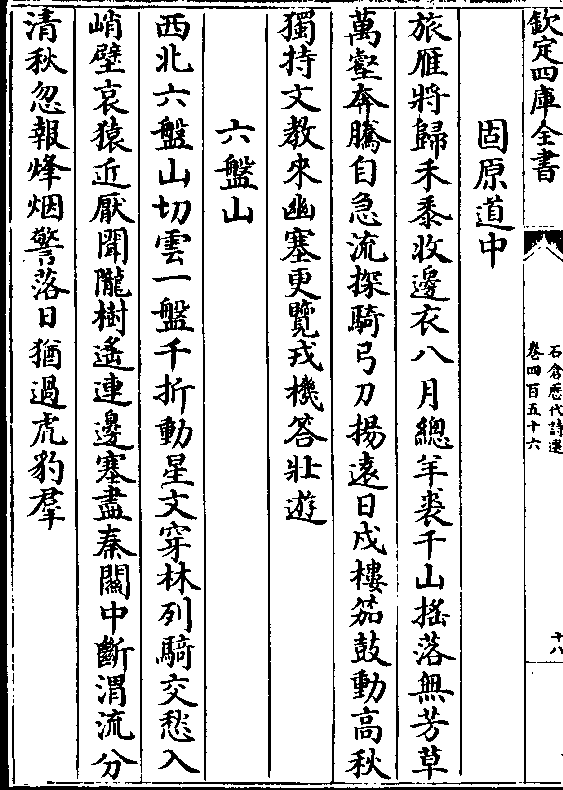 欽定四庫全書
石倉歷代詩選
卷四百五十六
十八
固原道中
旅雁將歸禾黍收邊衣八月總羊裘千山搖落無芳草
萬壑奔騰自急流探騎弓刀揚遠日戍樓笳鼓動高秋
獨持文教來幽塞更覽戎機答壯遊
六盤山
西北六盤山切雲一盤千折動星文穿林列騎交愁入
峭壁哀猿近厭聞隴樹遙連邊塞盡秦關中斷渭流分
清秋忽報烽烟警落日猶過虎豹羣